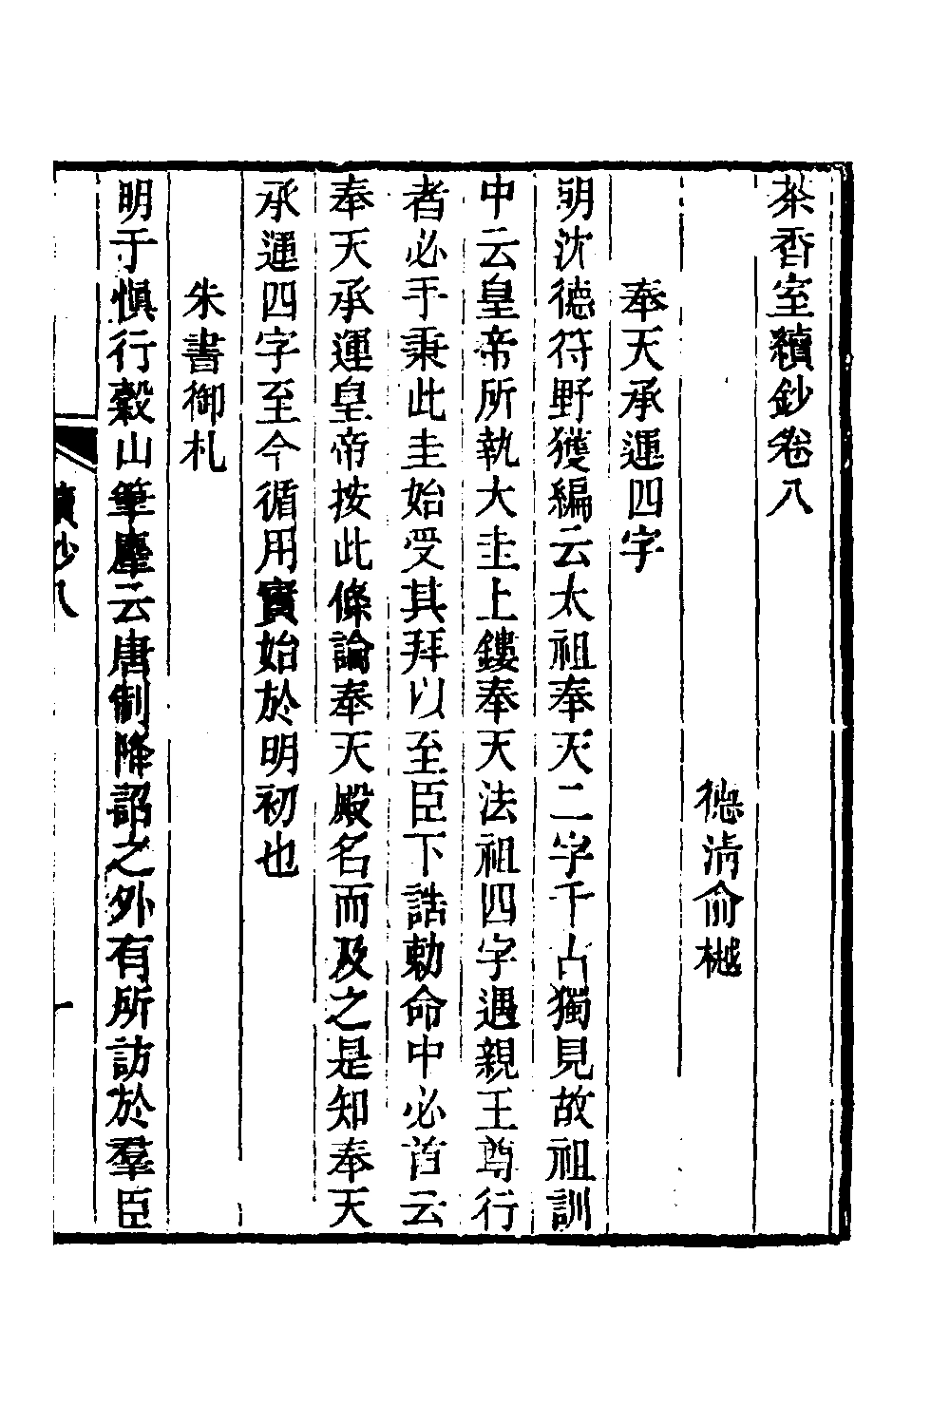 茶香室續鈔卷八
德清俞樾
奉天承運四字
明沈德符野獲編云太祖奉天二字千古獨見故祖訓
中云皇帝所執大圭上鏤奉天法祖四字遇親王尊行
者必手秉此圭始受其拜以至臣下誥勅命中必首云
奉天承運皇帝按此條論奉天殿名而及之是知奉天
承運四字至今循用實始於明初也
朱書御札
明于慎行穀山筆麈云唐制降詔之外有所訪於羣臣
續鈔八
一